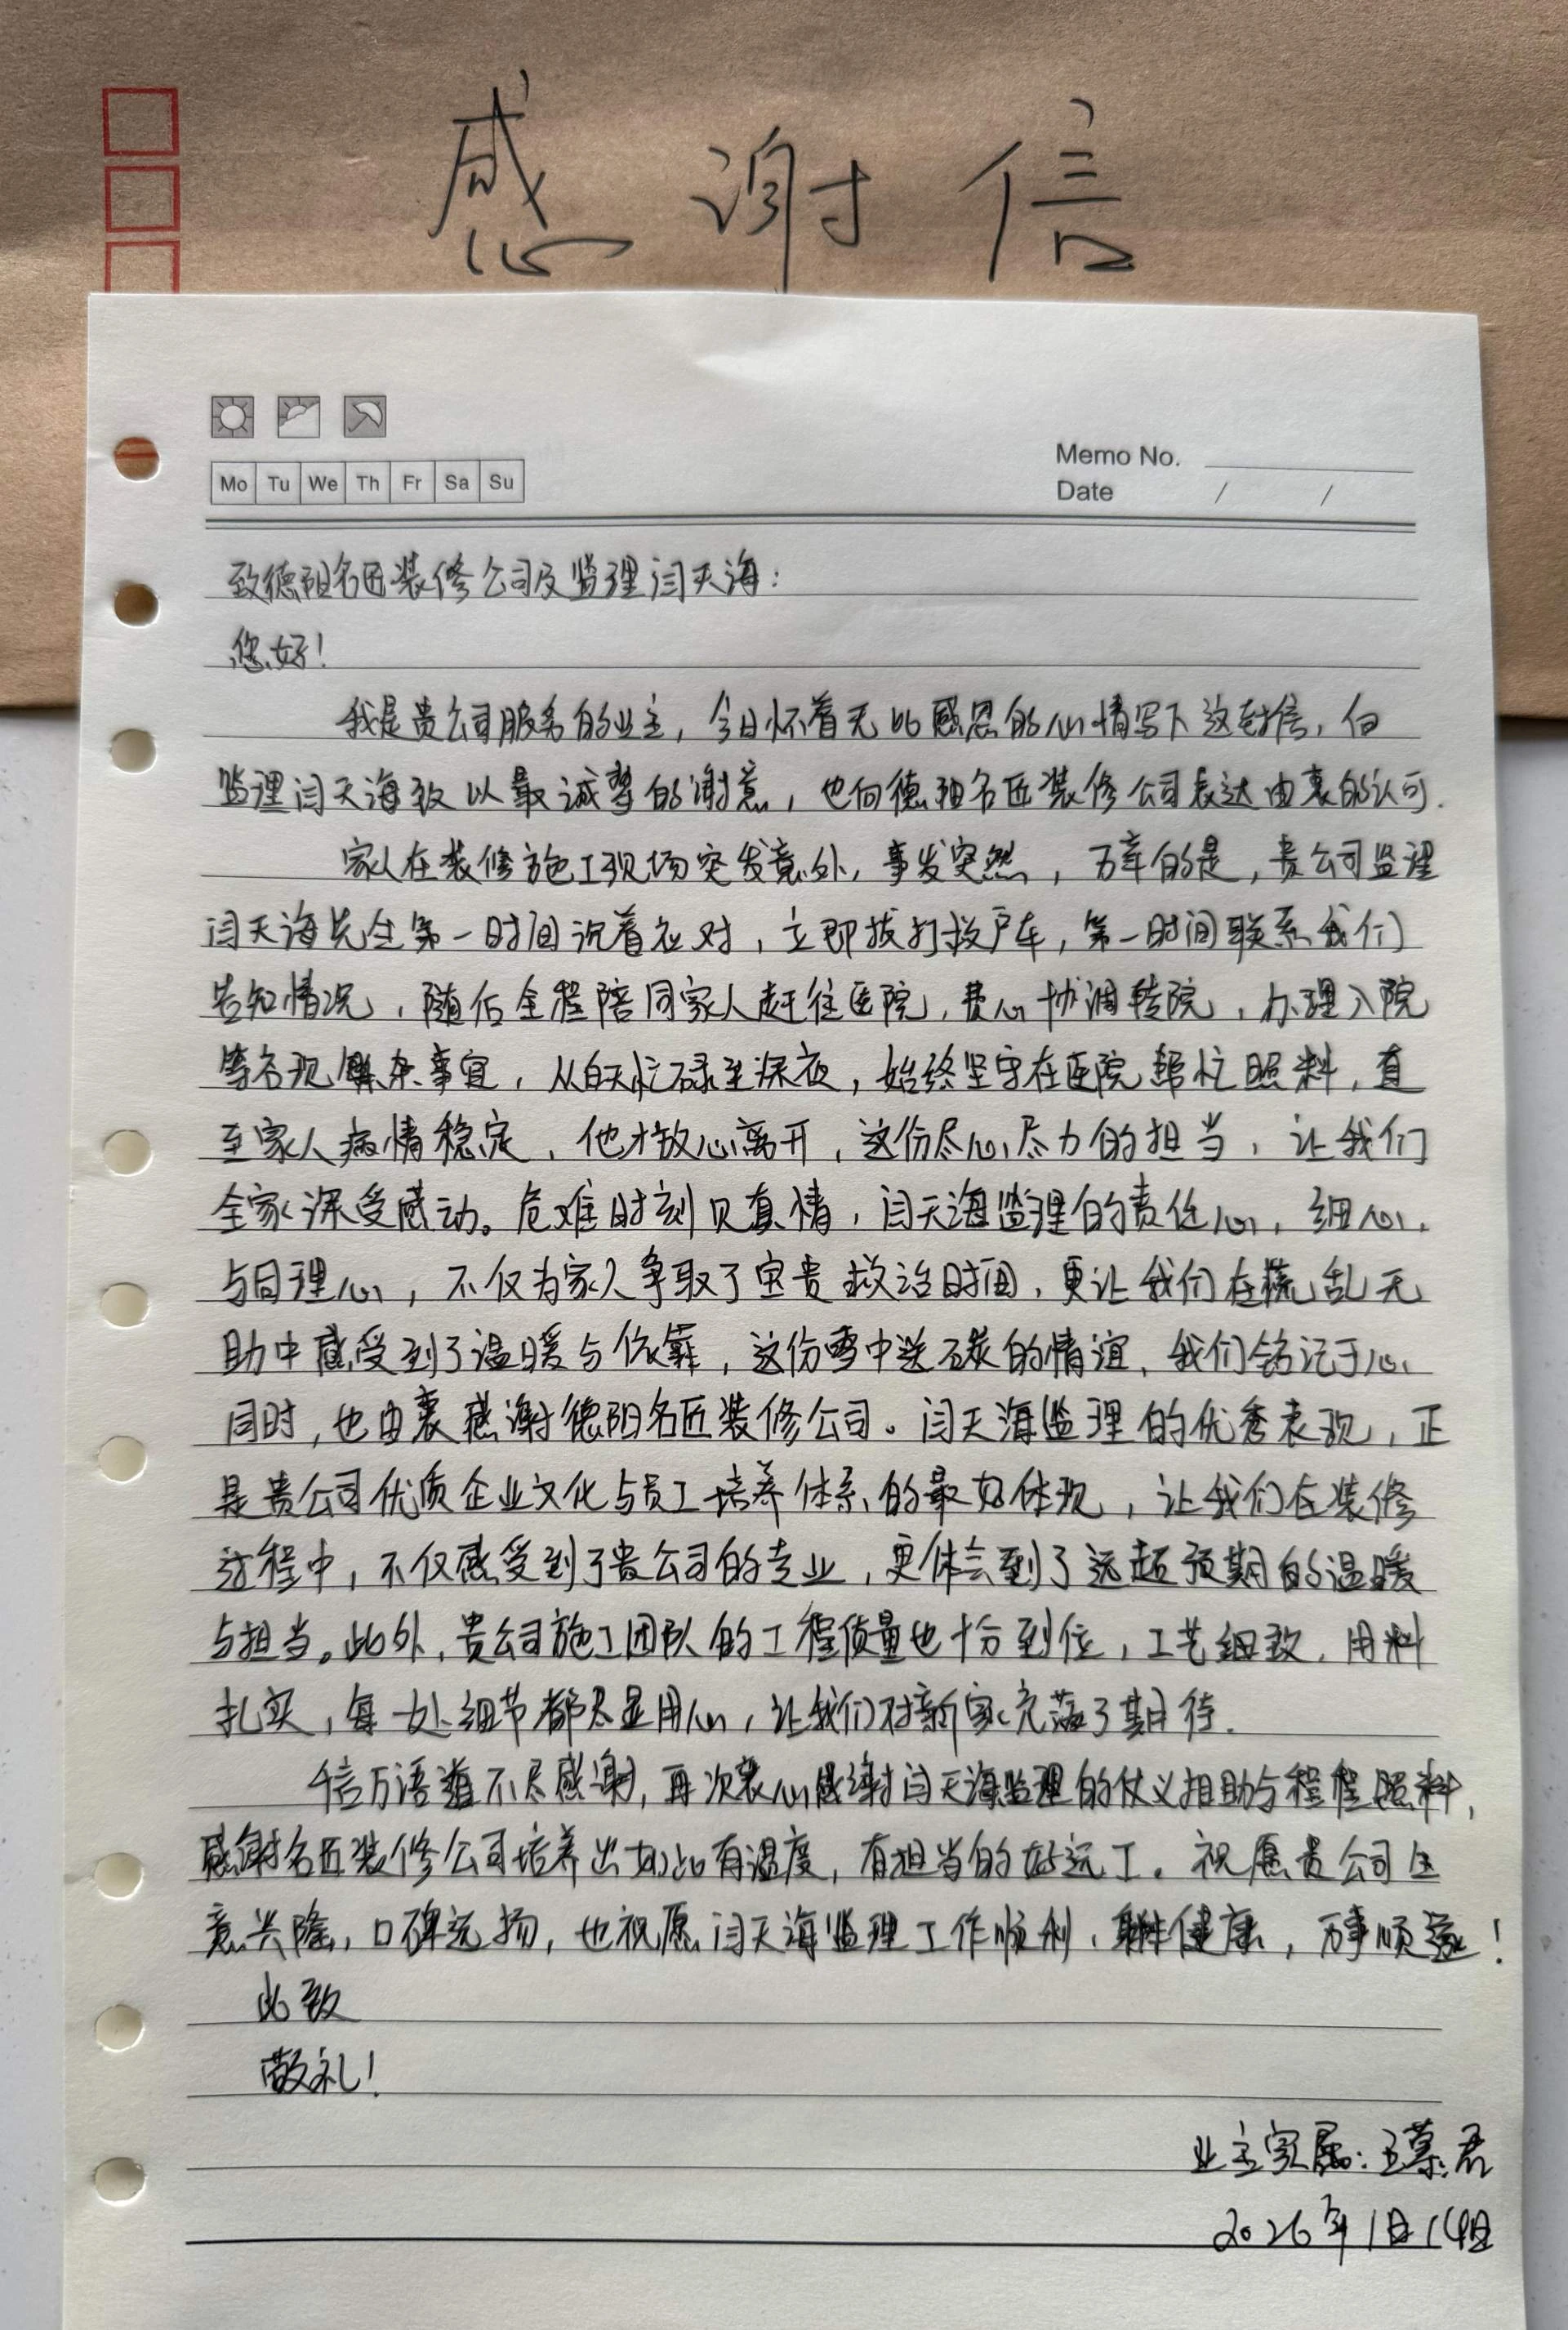 感谢信
Mo Tu We Th Fr Sa Su
Memo No.
Date / /
致德阳名匠装修公司及监理闫天海：
您好！
我是贵公司服务的业主，今日怀着无比感恩的心情写下这封信，向
监理闫天海致以最诚挚的谢意，也向德阳名匠装修公司表达由衷的认可.
家人在装修施工现场突发意外，事发突然，万幸的是，贵公司监理
闫天海先生第一时间沉着应对，立即拔打救护车，第一时间联系我们
告知情况，随后全程陪同家人赶往医院，费心协调转院，办理入院
等各项繁杂事宜，从白天忙碌至深夜，始终坚守在医院帮忙照料，直
至家人病情稳定，他才放心离开，这份尽心尽力的担当，让我们
全家深受感动。危难时刻见真情，闫天海监理的责任心，细心，
与同理心，不仅为家人争取了宝贵救治时间，更让我们在慌乱无
助中感受到了温暖与依靠，这份雪中送碳的情谊，我们铭记于心
同时，也由衷感谢德阳名匠装修公司。闫天海监理的优秀表现，正
是贵公司优质企业文化与员工培养体系的最好体现，让我们在装修
过程中，不仅感受到了贵公司的专业，更体会到了远超预期的温暖
与担当。此外，贵公司施工团队的工程质量也十分到位，工艺细致，用料
扎实，每一处细节都尽显用心，让我们对新家充满了期待.
千言万语道不尽感谢，再次衷心感谢闫天海监理的仗义相助与程程照料，
感谢名匠装修公司培养出如此有温度，有担当的好员工。祝愿贵公司生
意兴隆，口碑远扬，也祝愿闫天海监理工作顺利，身体健康，万事顺遂！
此致
敬礼！
业主家属：王慕君
2026年1月14日